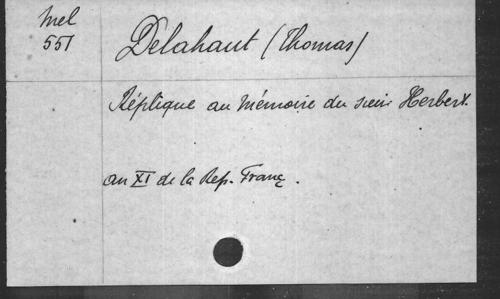 Mel
551
Délahaut (Thomas)
Réplique au Mémoire du sieur Herbert.
an XI de la Rep. Franç.